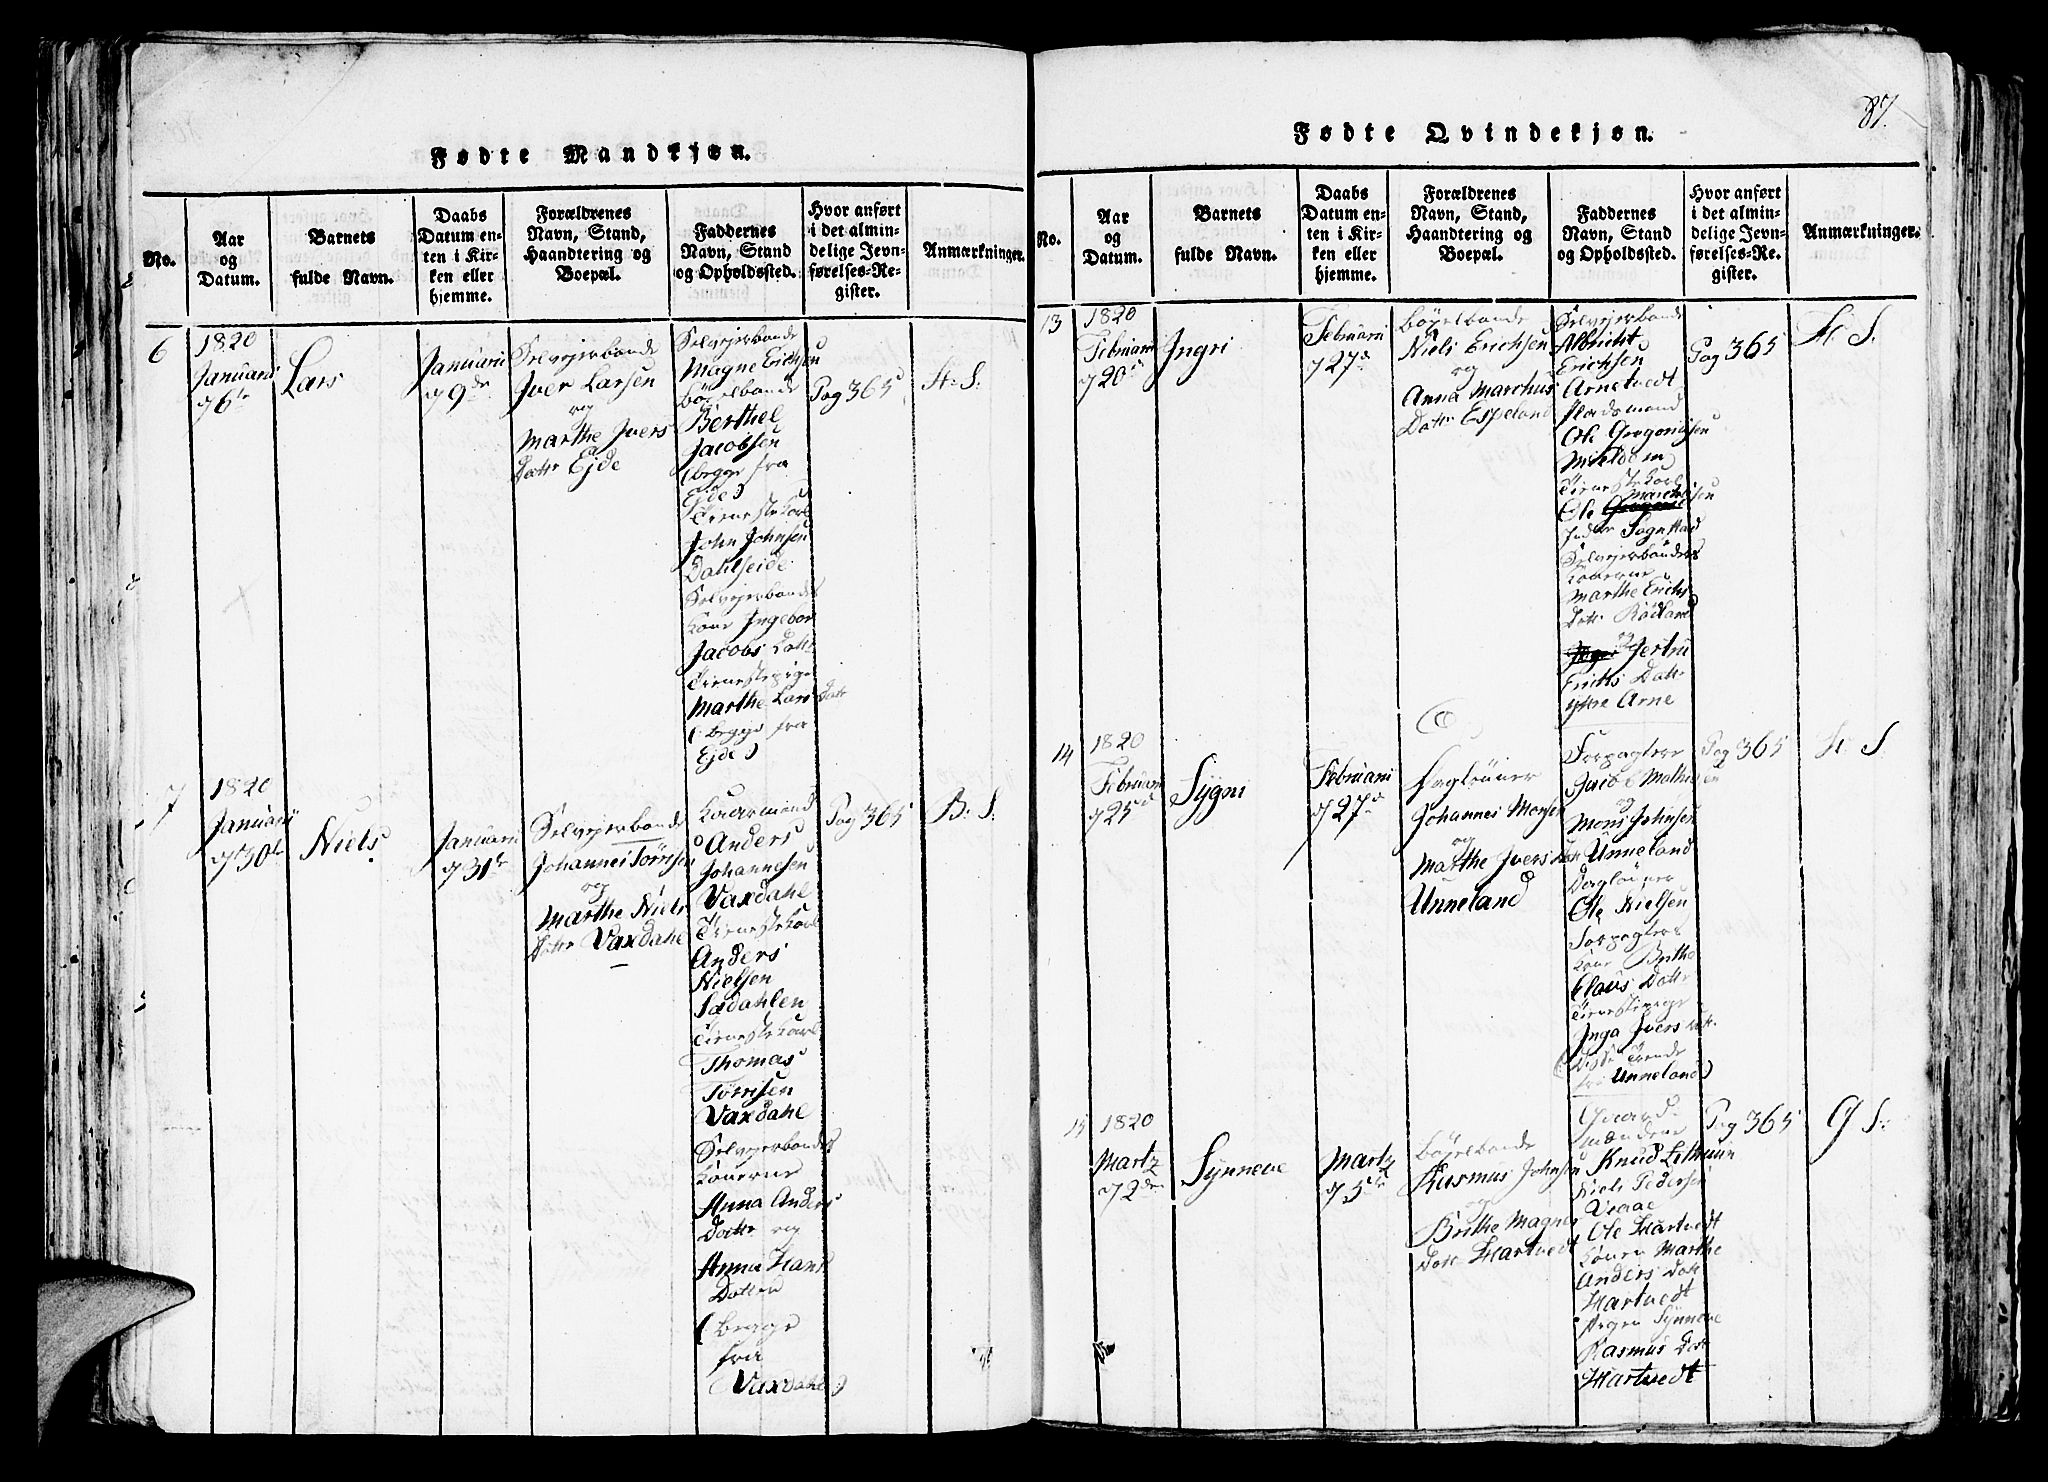 Fødte Mandkjøn.
No.
Aar
og
Datum.
Barnets
fulde Navn.
Daabs
Datum en-
ten i Kir-
ken eller
hjemme.
Forældrenes
Navn, Stand,
Haandtering og
Boepæl.
Faddernes
Navn, Stand
og Opholdssted.
Hvor anført
i det almin-
delige Jevn-
førelses-Re-
gister.
Anmærkninger.
6
1820
Januarii
d 6te
Lars
Januarii
d 9de
Selvejerbonde
Iver Larsen
og
Marthe Ivers
Dattr Ejde
Selvejerbonde
Magne Erichsen
Böxelbonde
Berthel
Jacobsen
(begge fra
Ejde)
Tienestekarl
John Johnsen
Dahlseide
Selvejerbondes
Kone Ingebor
Jacobs Dattr
Tienestepige
Marthe Lars Dattr
(begge fra
Ejde)
Pag 365
H. S.
7
1820
Januarii
d 30te
Niels
Januarii
d 31te
Selvejerbonde
Johannes Törrisen
og
Marthe Niels
Dattr Vaxdahl
Anders
Johannesen
Vaxdahl
Tienestekarl
Anders
Nielsen
Sædahlen
Tienestekarl
Thomas
Törrisen
Vaxdahl
Selvejerbondes
Konerne
Anna Anders
Dattr og
Anna Hans
Datter
(begge
fra
Vaxdahl)
Pag 365
B. S.
87.
Fødte Qvindekjøn.
No.
Aar
og
Datum.
Barnets
fulde Navn.
Daabs
Datum en-
ten i Kir-
ken eller
hjemme.
Forældrenes
Navn, Stand,
Haandtering og
Boepæl.
Faddernes
Navn, Stand
og Opholdssted.
Hvor anført
i det almin-
delige Jevn-
førelses-Re-
gister.
Anmærkninger.
13
1820
Februarii
d 20de
Ingri
Februarii
d 27de
Böxelbonde
Niels Erichsen
og
Anna Marchus
Dattr Espeland
Selvejerbonde
Albricht
Erichsen
Arnetvedt
Pladsmand
Ole Gregoriisen
Mieldem
Tienestekarl
Ole
Indre Sognstad
Selvejerbönders
Konerne
Marthe Erichs
Dattr Rödland
og Jertru
Erichs Dattr
ytre Arne
Pag 365
H. S.
14
1820
Februarii
d 25de
Sygni
Februarii
d 27de
Daglönner
Johannes Monsen
og
Marthe Ivers Dattr
Unneland
Forpagtere
Jacob Mathiesen
og
Mons Johnsen
Unneland
Daglönner
Ole Nielsen
Forpagters
Kone Brithe
Claus Dattr
Tienestepige
Inga Ivers Dattr
(Disse Trende
fra Unneland)
Pag 365
H. S.
15
1820
Martz
d 2den
Synneve
Martz
d 5te
Böxelbonde
Rasmus Johnsen
og
Brithe Magnes
Dattr Hartvedt
Gaard-
mændene
Knud
Niels Pedersen
Ole Hartvedt
Konen Marthe
Anders Dattr
Hartvedt
Pigen Synneve
Rasmus Dattr
Hartvedt
Pag 365
G. S.